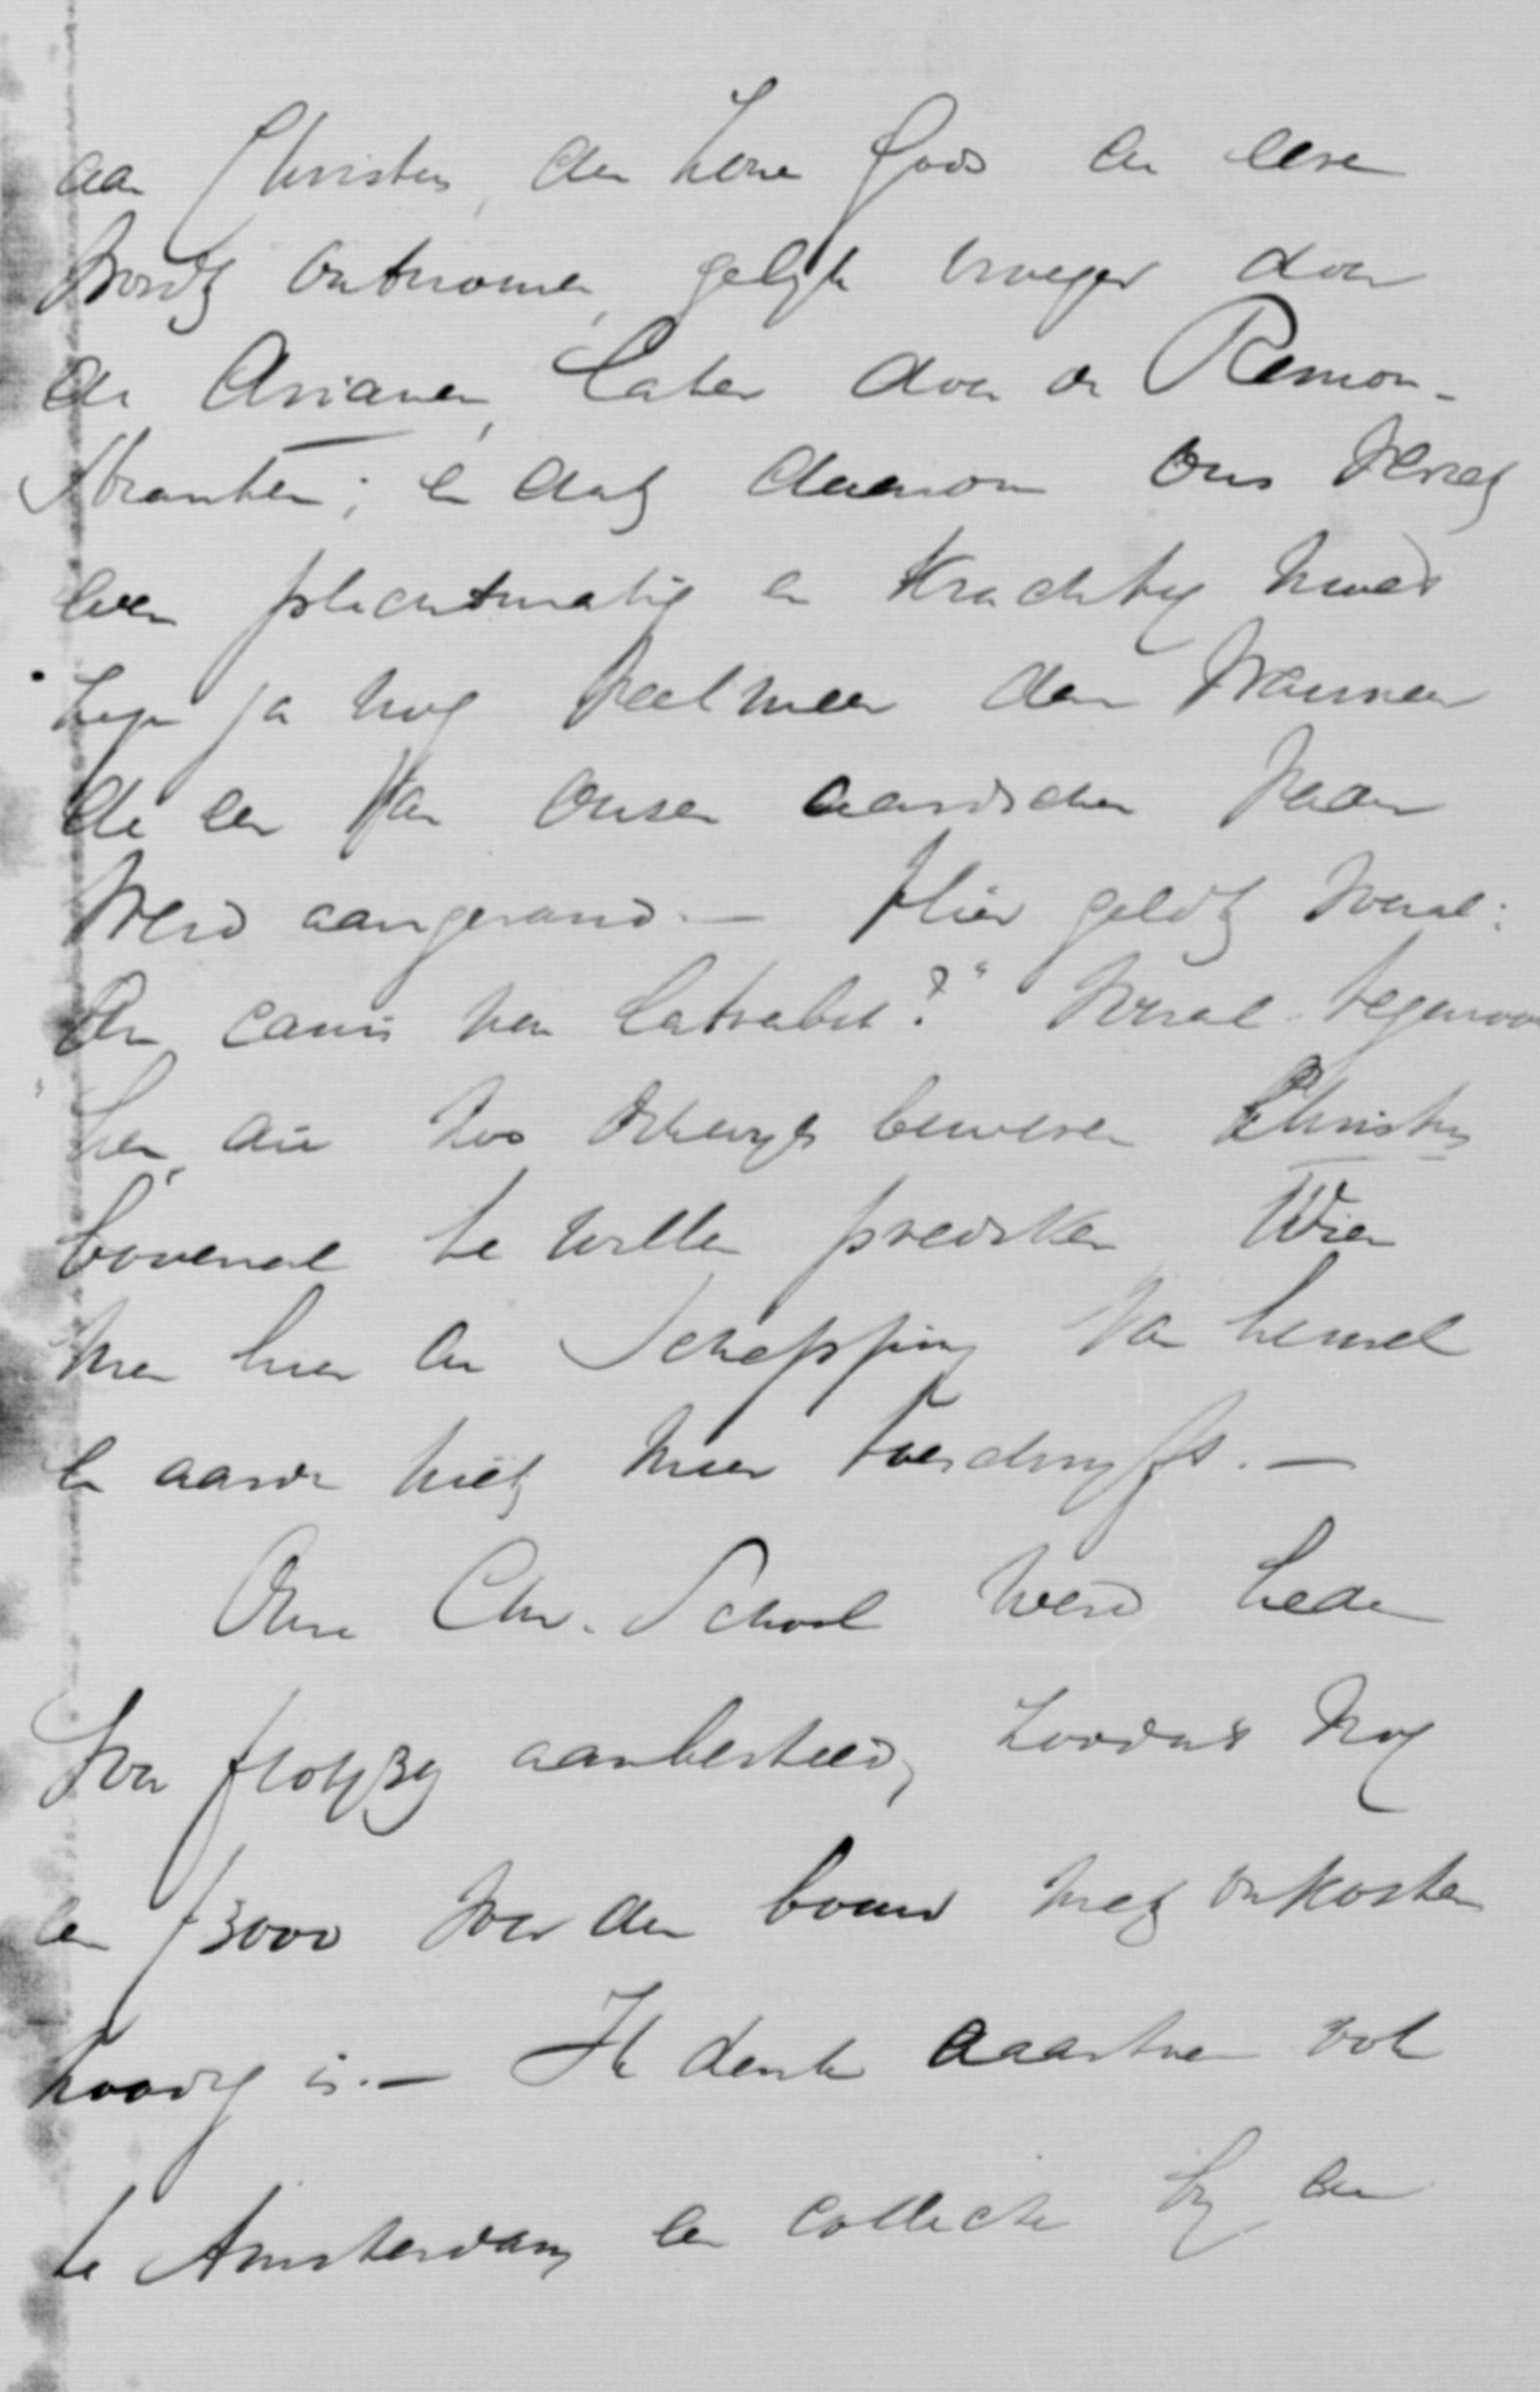 aan Christus, den Zone Gods de eere
wordt ontnomen, gelijk vroeger door
de Arianen, later door de Remon-
stranten; en dat daarom ons verzet
even plichtmatig en krachtig moet
zijn ja nog veel meer dan wanneer
de eer van onzen aardschen vader
werd aangerand. — Hier geldt vooral:
"An canis non latrabit?" Vooral tegenover
hen, die zoo beweren Christus
bovenal te willen prediken Wien
men hier de Schepping van hemel
en aarde niet meer toeschrijft. —
Onze Chr. School werd heden
voor aanbesteed, zoodat nog
een f3000 voor den bouw met onkosten
noodig is. — Ik denk daartoe ook
te Amsterdam een collecte bij de